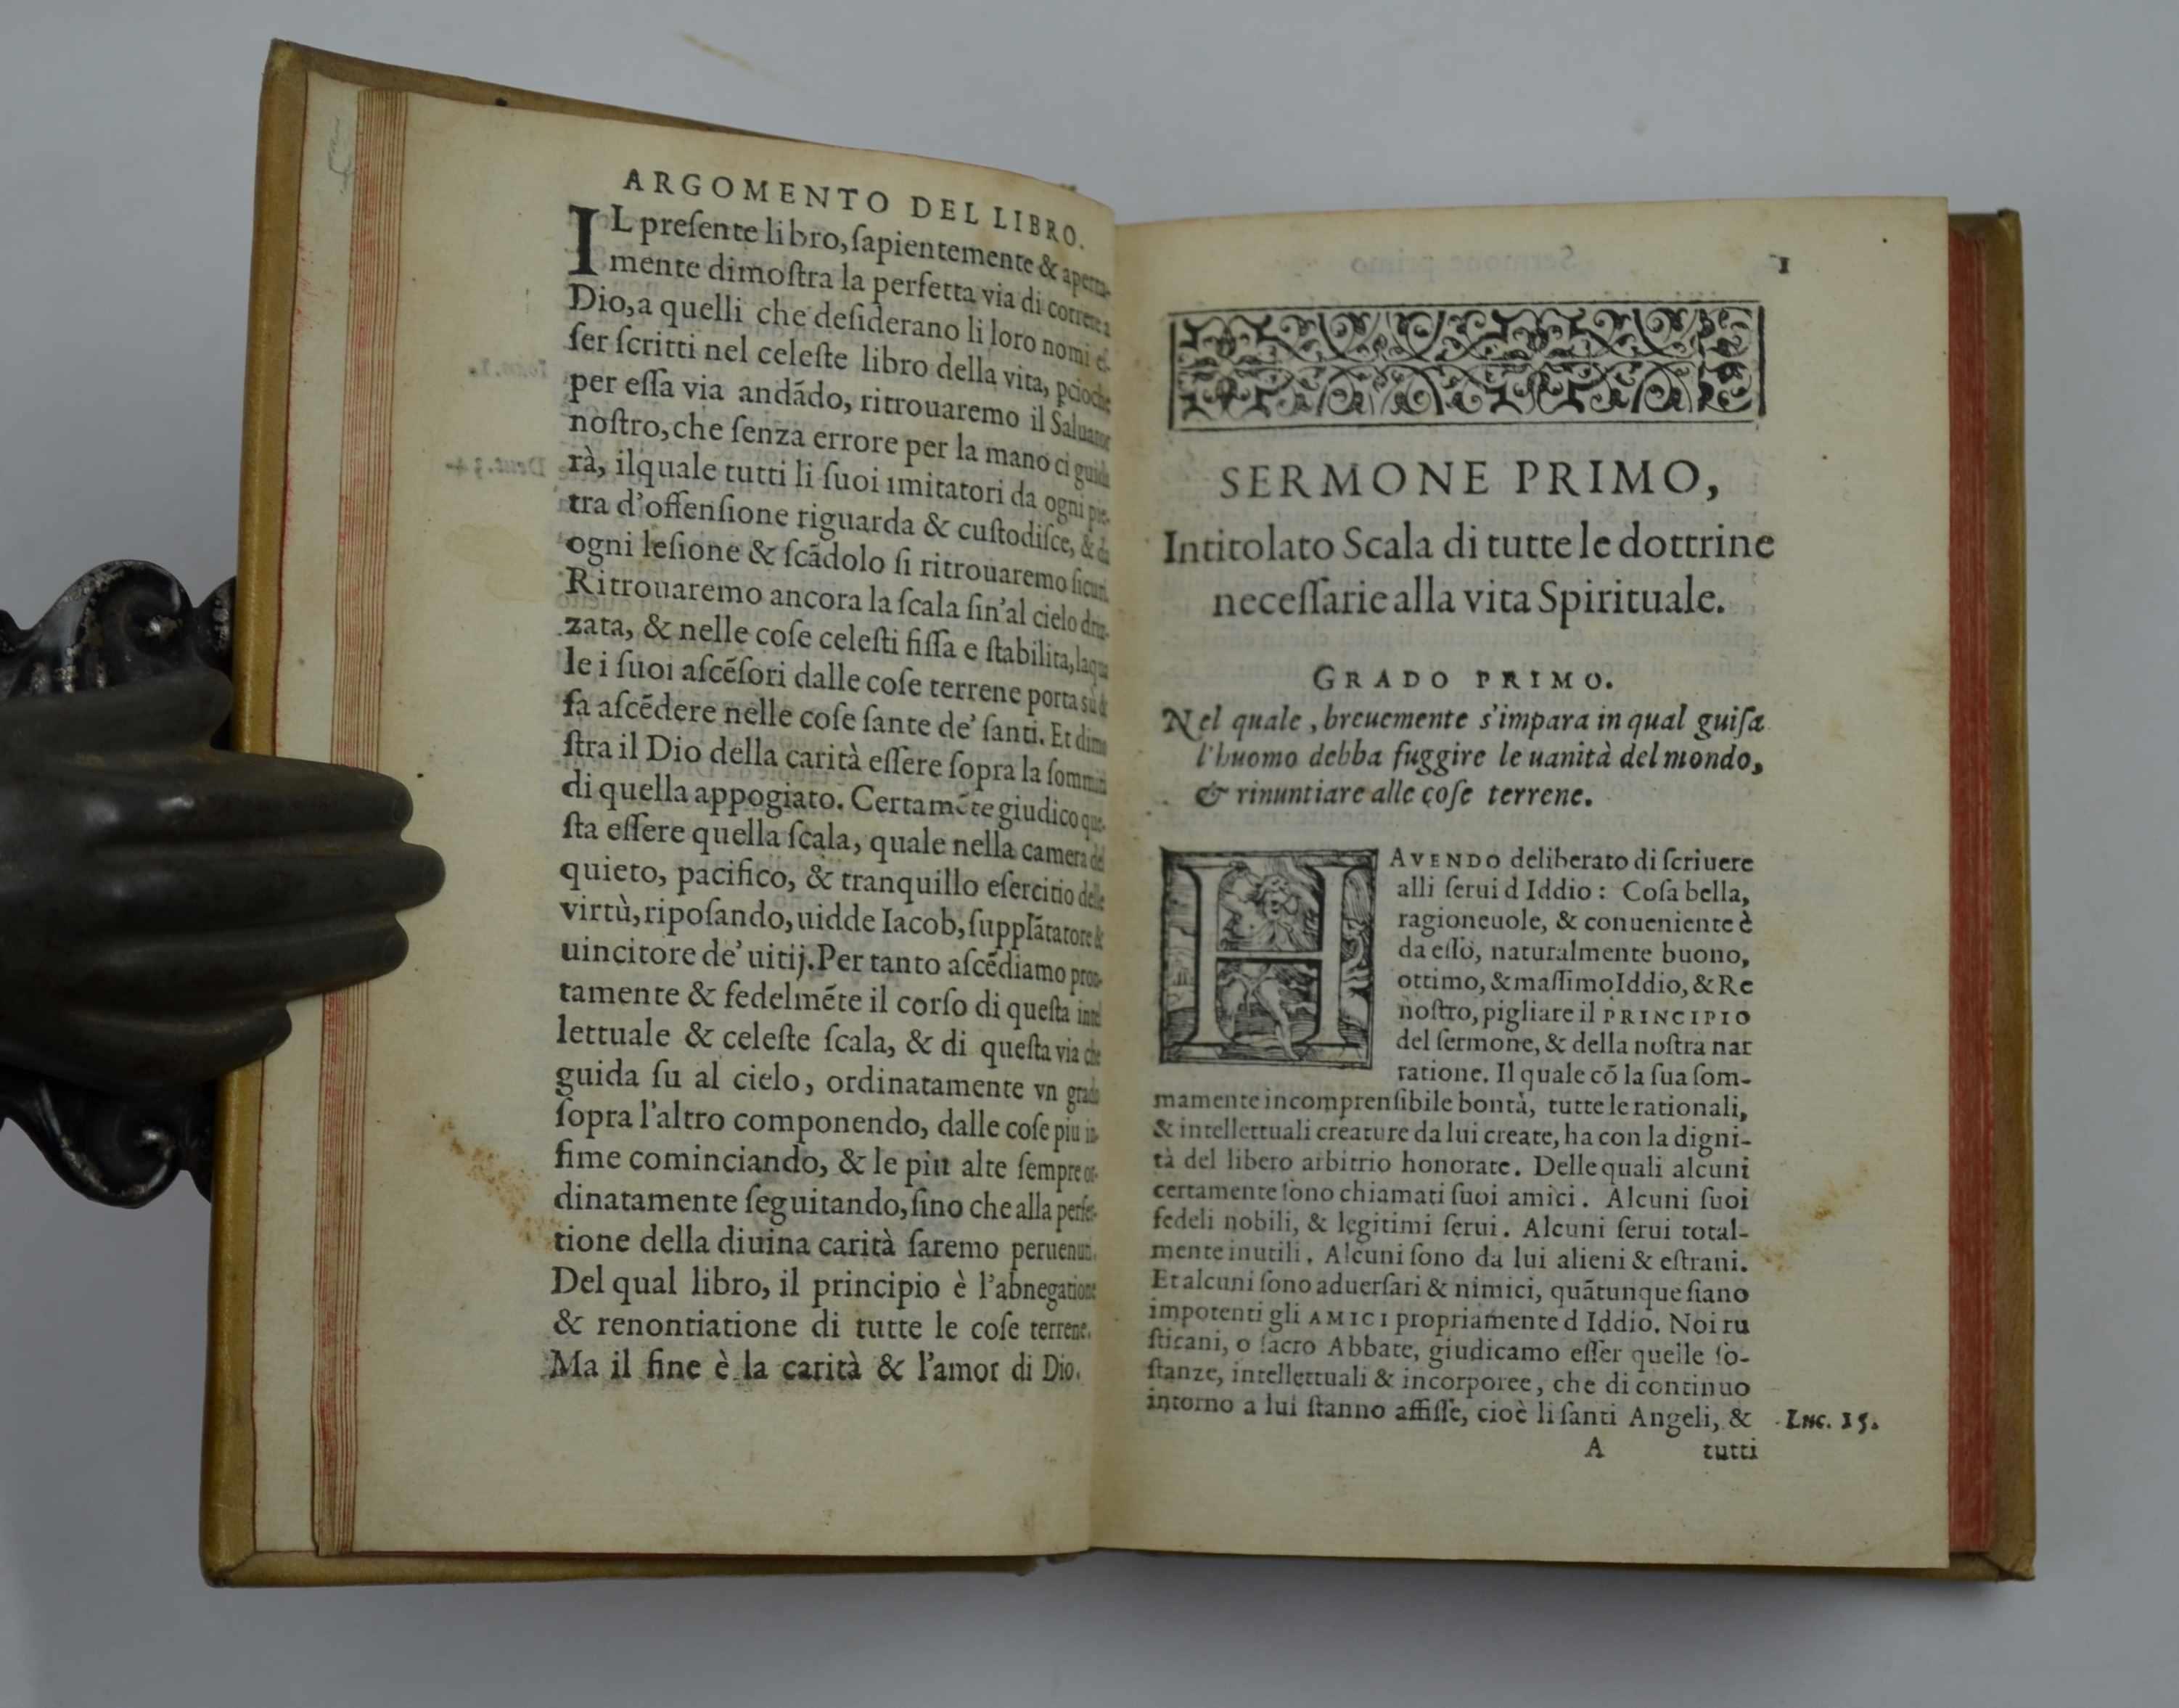 ARGOMENTO DEL LIBRO.
IL preſente libro, ſapientemente & aperta-
mente dimoſtra la perfetta via di correre a
Dio, a quelli che deſiderano li loro nomi eſ-
ſer ſcritti nel celeſte libro della vita, pcioche
per eſſa via andãdo, ritrouaremo il Saluator
noſtro, che ſenza errore per la mano ci guida
rà, ilquale tutti li ſuoi imitatori da ogni pie-
tra d'offenſione riguarda & cuſtodiſce, & da
ogni leſione & ſcãdolo ſi ritrouaremo ſicuri.
Ritrouaremo ancora la ſcala ſin'al cielo driz-
zata, & nelle coſe celeſti fiſſa e ſtabilita, laqua
le i ſuoi aſcẽſori dalle coſe terrene porta sù &
fa aſcẽdere nelle coſe ſante de' ſanti. Et dimo
ſtra il Dio della carità eſſere ſopra la ſommità
di quella appogiato. Certamẽte giudico que-
ſta eſſere quella ſcala, quale nella camera del
quieto, pacifico, & tranquillo eſercitio delle
virtù, ripoſando, uidde Iacob, ſupplãtatore &
uincitore de' uitij. Per tanto aſcẽdiamo pron-
tamente & fedelmẽte il corſo di queſta intel
lettuale & celeſte ſcala, & di queſta via che
guida ſu al cielo, ordinatamente vn grado
ſopra l'altro componendo, dalle coſe piu in-
fime cominciando, & le piu alte ſempre or-
dinatamente ſeguitando, ſino che alla perfet-
tione della diuina carità ſaremo peruenuti.
Del qual libro, il principio è l'abnegatione
& renontiatione di tutte le coſe terrene.
Ma il fine è la carità & l'amor di Dio.
1
SERMONE PRIMO,
Intitolato Scala di tutte le dottrine
neceſſarie alla vita Spirituale.
GRADO PRIMO.
Nel quale, breuemente s'impara in qual guiſa
l'huomo debba fuggire le uanità del mondo,
& rinuntiare alle coſe terrene.
HAVENDO deliberato di ſcriuere
alli ſerui d Iddio: Coſa bella,
ragioneuole, & conueniente è
da eſſo, naturalmente buono,
ottimo, & maſſimo Iddio, & Re
noſtro, pigliare il PRINCIPIO
del ſermone, & della noſtra nar
ratione. Il quale cõ la ſua ſom-
mamente incomprenſibile bontà, tutte le rationali,
& intellettuali creature da lui create, ha con la digni-
tà del libero arbitrio honorate. Delle quali alcuni
certamente ſono chiamati ſuoi amici. Alcuni ſuoi
fedeli nobili, & legitimi ſerui. Alcuni ſerui total-
mente inutili. Alcuni ſono da lui alieni & eſtrani.
Et alcuni ſono aduerſari & nimici, quãtunque ſiano
impotenti gli AMICI propriamente d Iddio. Noi ru
ſticani, o ſacro Abbate, giudicamo eſſer quelle ſo-
ſtanze, intellettuali & incorporee, che di continuo
intorno a lui ſtanno affiſſe, cioè li ſanti Angeli, &
Luc. 15.
A tutti